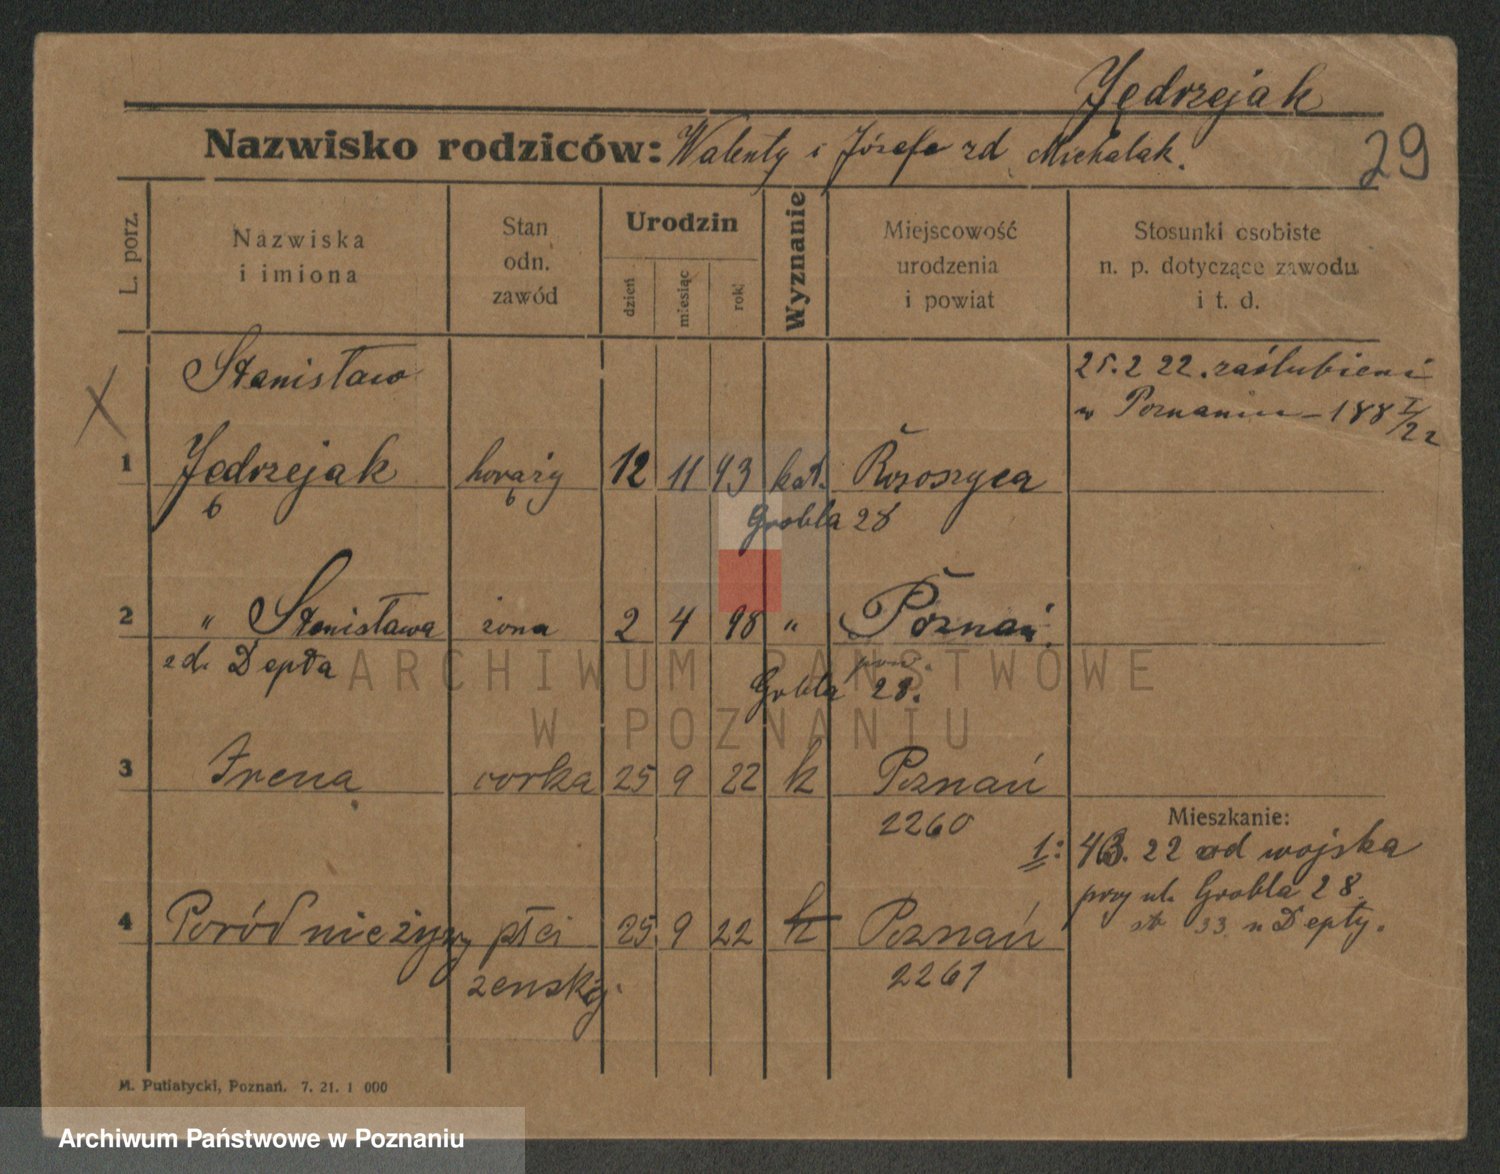 Jędrzejak
Nazwisko rodziców: Walenty i Józefa zd. Michalak.
29
L. porz.
Nazwiska
i imiona
Stan
odn.
zawód
Urodzin
dzień
miesiąc
rok
Wyznanie
Miejscowość
urodzenia
i powiat
Stosunki osobiste
n. p. dotyczące zawodu
i t. d.
Stanisław
25.2 22. zaślubieni
w Poznaniu – 188 I/22
1 Jędrzejak chorąży 12 11 93 kat.
Grobla 28
2 " Stanisława żona 2 4 98 " Poznań
zd. Depta
Grobla 28.
3 Irena córka 25 9 22 k Poznań
2260
Mieszkanie:
1: 22 od wojska
przy ul. Grobla 28
33 u Depty.
4 Poród nieżywy płci 25 9 22 k Poznań
żeńskiej.
2261
M. Putiatycki, Poznań. 7. 21. 1 000
ARCHIWUM PAŃSTWOWE
W POZNANIU
Archiwum Państwowe w Poznaniu